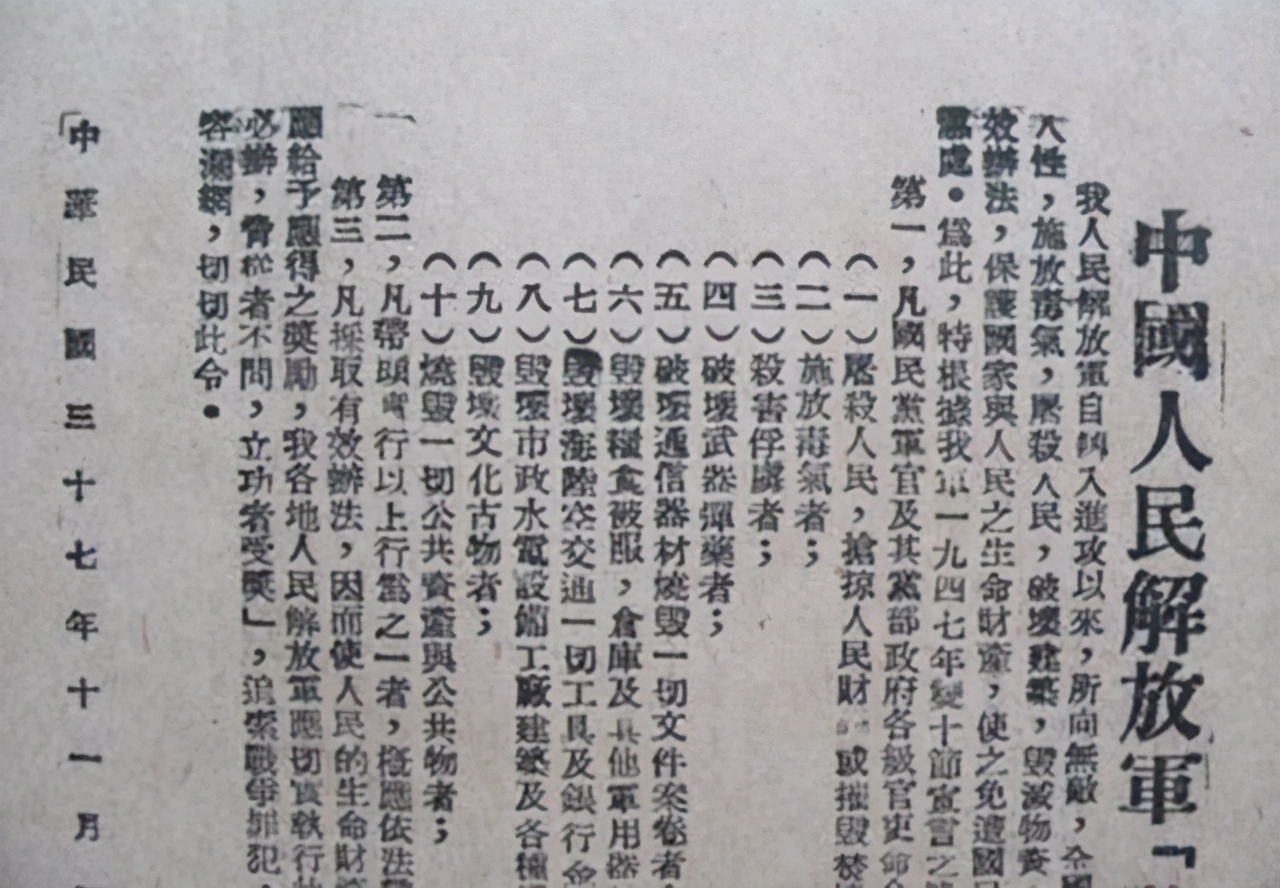 中國人民解放軍「
我人民解放軍自轉入進攻以來，所向無敵，全國
人性，施放毒氣，屠殺人民，破壞建築，毀滅物資
效辦法，保護國家與人民之生命財產，使之免遭國民
懲處。爲此，特根據我軍一九四七年雙十節宣言之
第一，凡國民黨軍官及其黨部政府各級官吏命令
（一）屠殺人民，搶掠人民財 或摧毀焚
（二）施放毒氣者；
（三）殺害俘虜者；
（四）破壞武器彈藥者；
（五）破壞通信器材燒毀一切文件案卷者；
（六）毀壞糧食被服，倉庫及其他軍用器
（七）毀壞海陸空交通一切工具及銀行金
（八）毀壞市政水電設備工廠建築及各種
（九）毀壞文化古物者；
（十）燒毀一切公共資產與公共物者；
第二，凡帶頭實行以上行爲之一者，概應依法
第三，凡採取有效辦法，因而使人民的生命財
應給予應得之獎勵，我各地人民解放軍應切實執行
必辦，脅從者不問，立功者受獎」，追索戰爭罪犯，
容漏網，切切此令。
「中華民國三十七年十一月